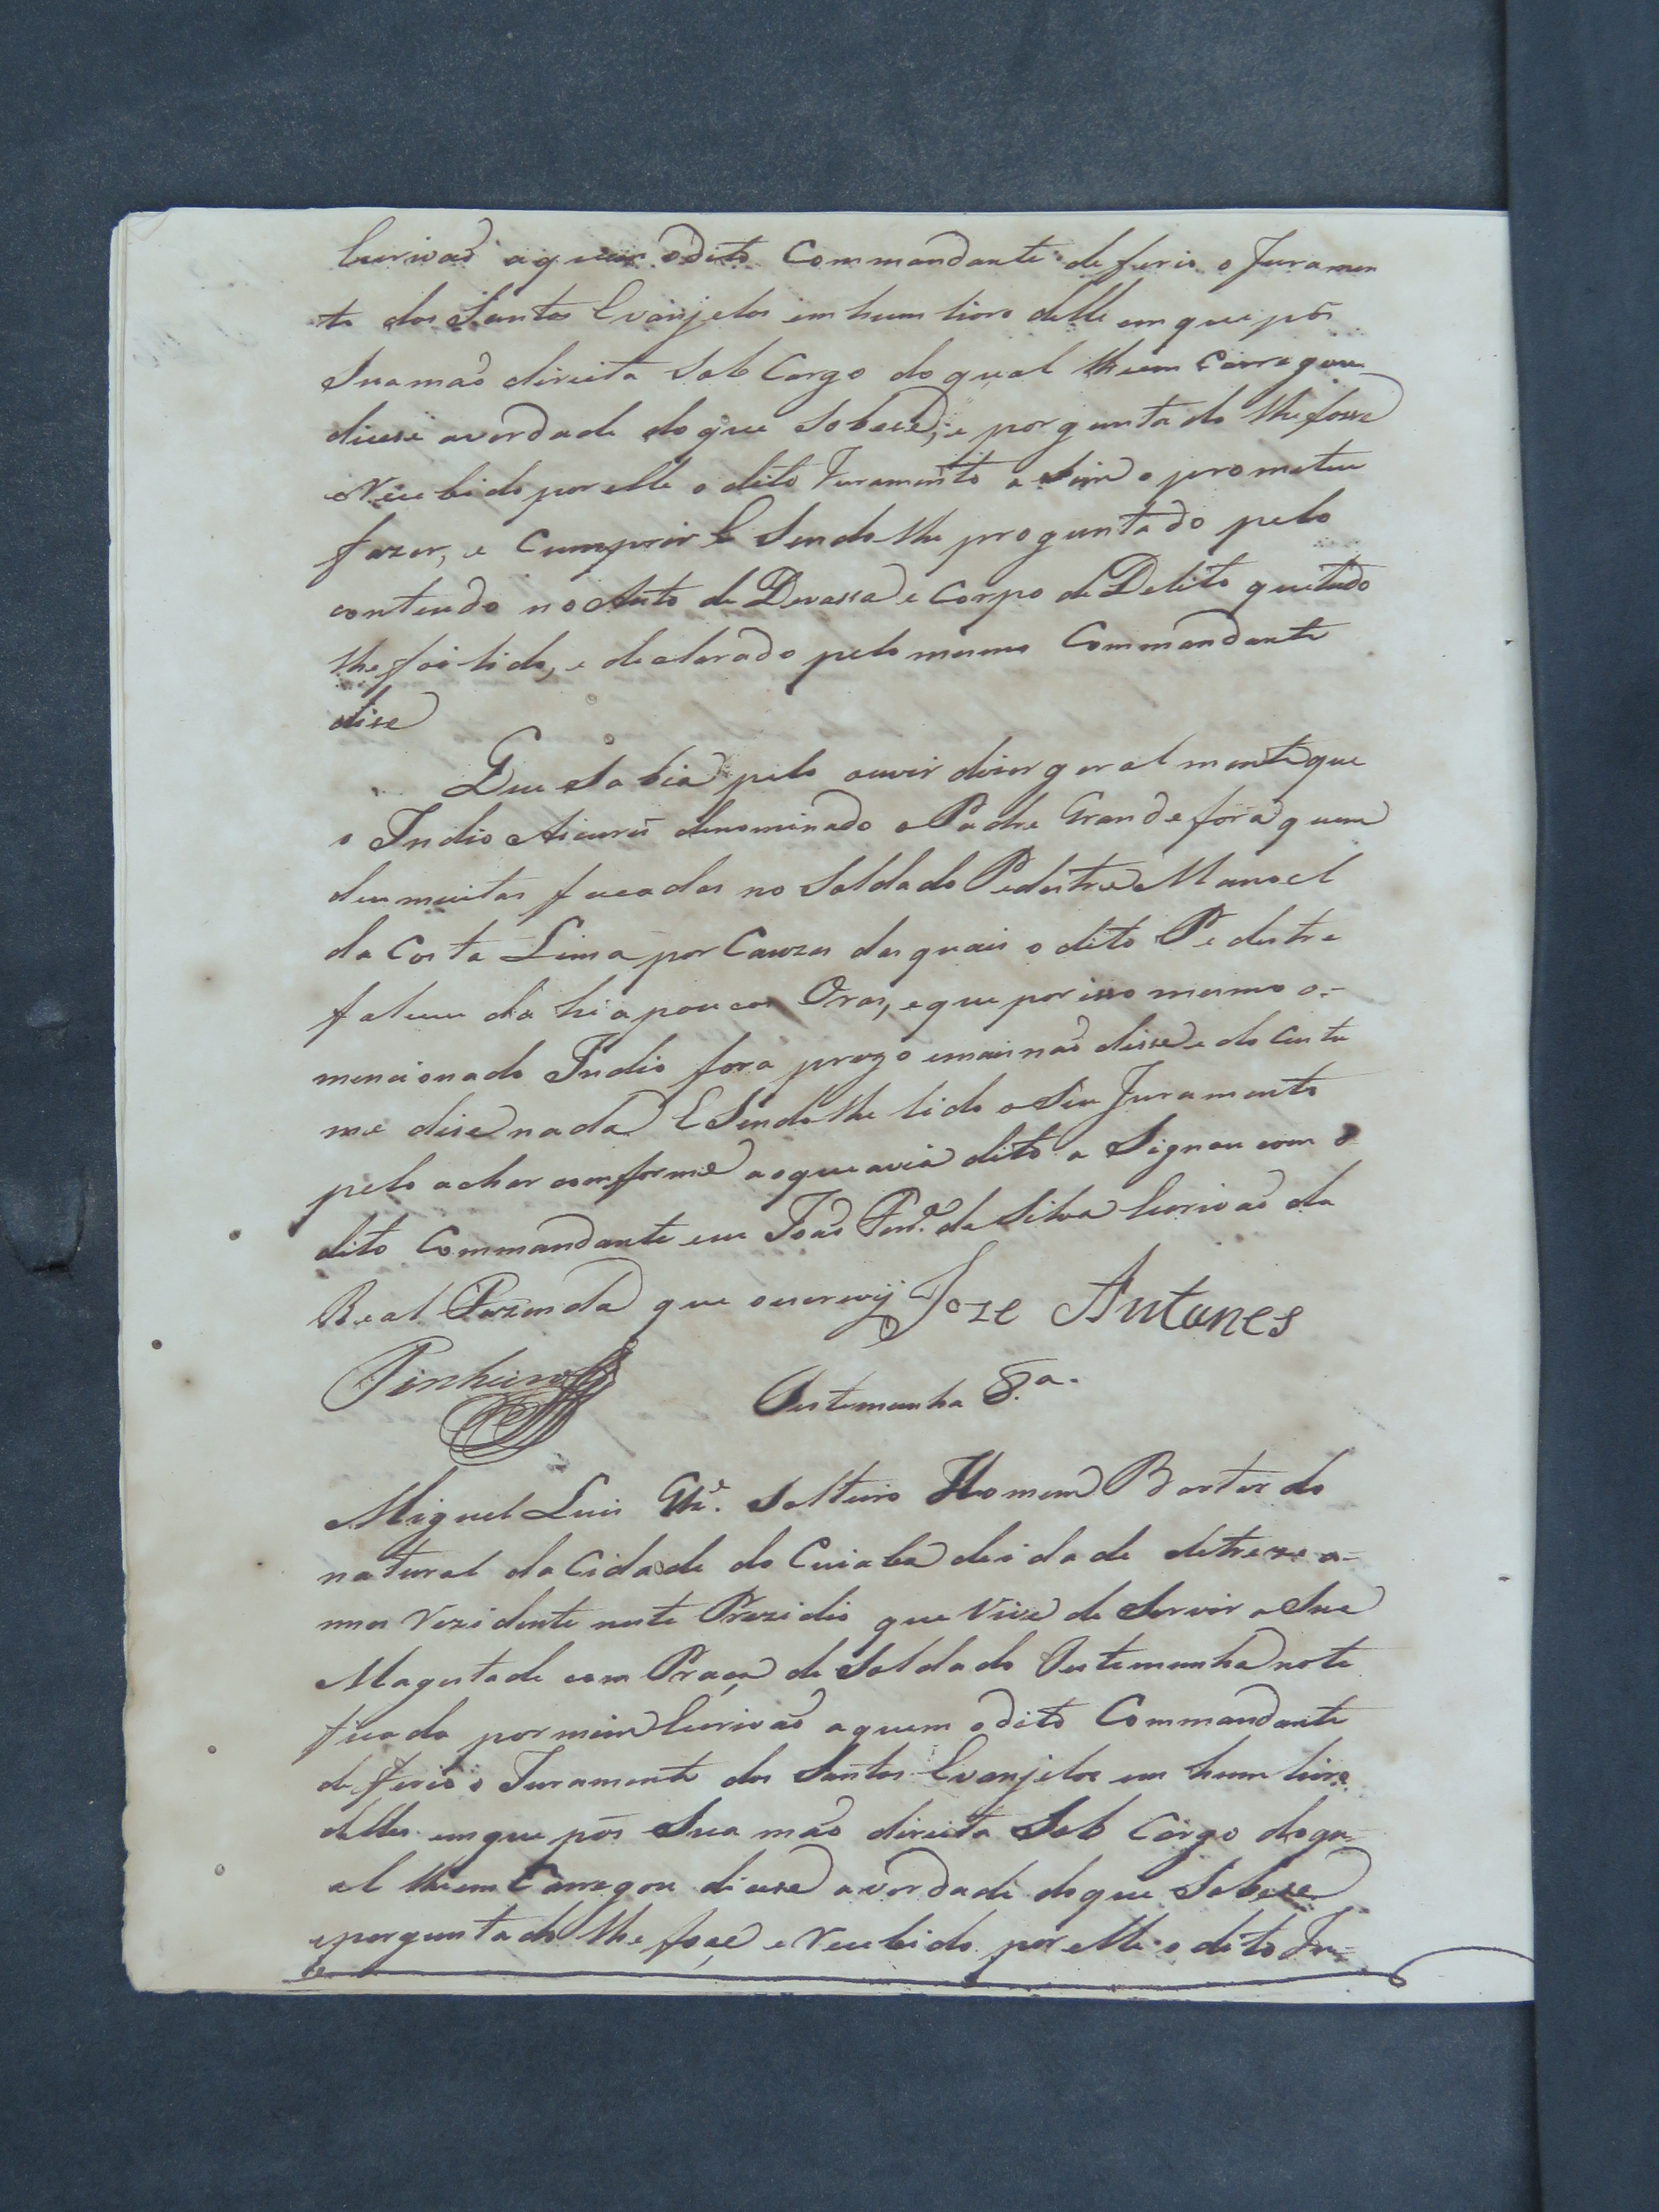 Escrivaõ aquem odito Commandante deferio o Juramen
to dos Santos Evanjelos em hum livro delle em que pôs
Sua maõ direita Sob Cargo do qual lhe em Carregou
dicese averdade do que Sobese, e porguntado lhe fosse
e Recebido por elle o dito Juramento a Sim o prometeu
fazer, e Cumprir E Sendo lhe proguntado pelo
conteudo no Auto de Devassa e Corpo de Delito que tudo
lhe foi lido, e declarado pelo mesmo Commandante
dise
Que Sabia pelo ouvir dizer geral mente que
o Indio Aicurú denominado o Padre Grande fora quem
deu muitas facadas no Soldado Pedestre Manoel
da Costa Lima por Cauza das quais o dito Pedestre
faleceu da hi a poucas Oras, e que por isso mesmo o
mencionado Indio fora prezo emais naõ disse e do Custu
me dise nada E Sendo lhe lido o Seu Juramento
pelo achar comforme aoque avia dito a Signou com o
dito Commandante eu Joaõ da Silva Escrivaõ da
Real Fazenda que oescrevij Joze Antunes
Pinheiro
Testemunha 8.ª
Miguel Luis Solteiro Homem Bastardo
natural da Cidade do Cuiabá de idade de treze a=
nnos Rezidente neste Prezidio que Vive de Servir a Sua
Magestade com Praça de Soldado Testemunha note
ficada por mim Escrivaõ aquem odito Commandante
deferio o Juramento dos Santos Evanjelos em hum livro
delles em que pôs Sua maõ direita Sob Cargo do qu=
al lhe em Carregou dicese averdade do que Sobese
e porguntado lhe fose e Recebido por elle o dito Ju=